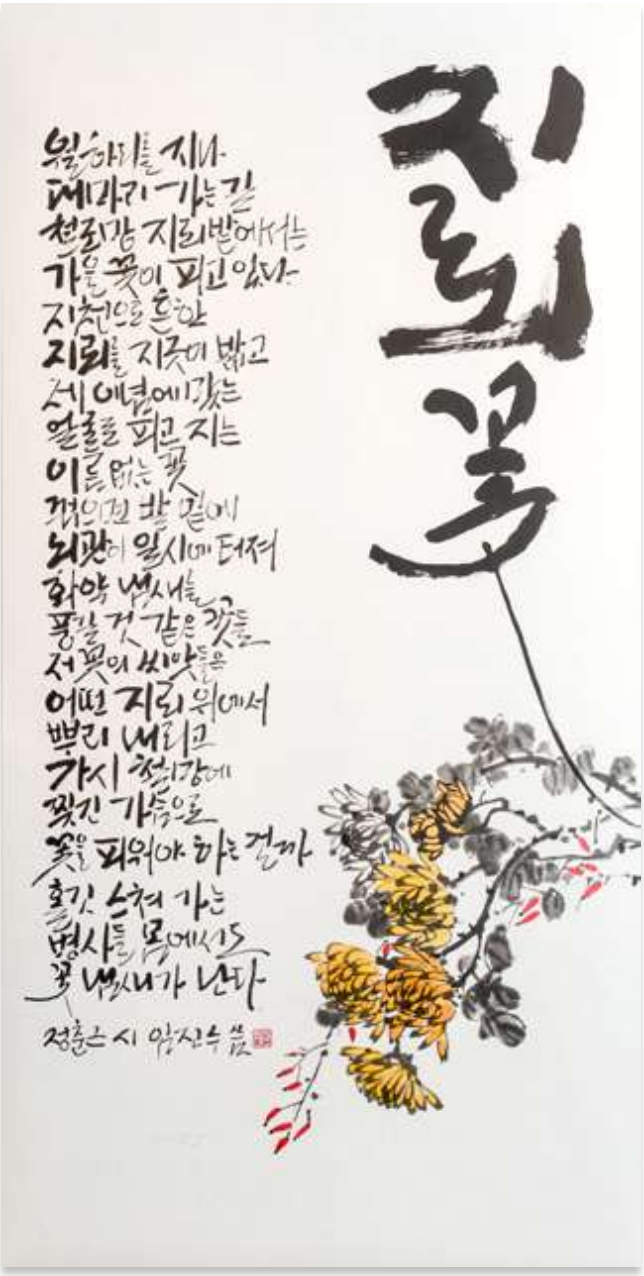 지뢰꽃
월하리를 지나
대마리 가는 길
철조망 지뢰밭에서는
가을꽃이 피고 있다
지천으로 흔한
지뢰를 지긋이 밟고
제 이념에 맞는
얼굴로 피고 지는
이름 없는 꽃
꺾으면 발 밑에
뇌관이 일시에 터져
화약 냄새를
풍길 것 같은 꽃들
저 꽃의 씨앗들은
어떤 지뢰 위에서
뿌리 내리고
가시 철망에
찢긴 가슴으로
꽃을 피워야 하는 걸까
흘깃 스쳐 가는
병사들 몸에서도
꽃 냄새가 난다
정춘근 시 임진수 씀